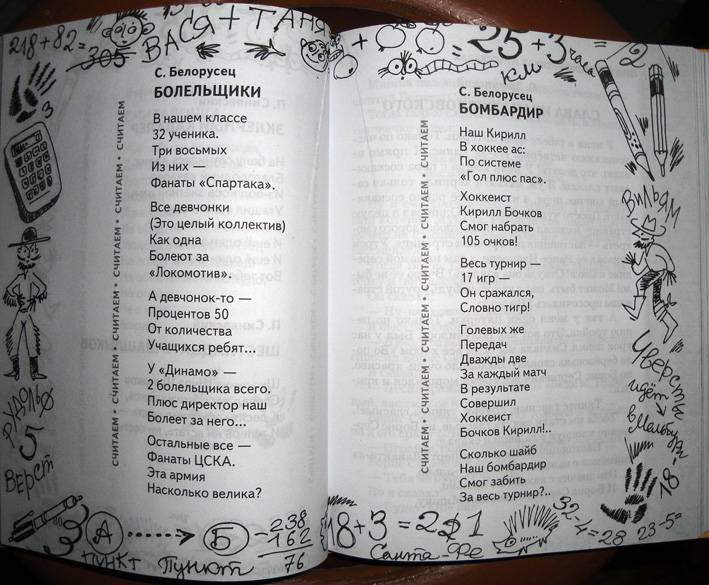 218 + 82 =
305
ВАСЯ + ТАНЯ
3
С. Белорусец
БОЛЕЛЬЩИКИ
СЧИТАЕМ • СЧИТАЕМ • СЧИТАЕМ • СЧИТАЕМ • СЧИТАЕМ • СЧИТАЕМ
В нашем классе
32 ученика.
Три восьмых
Из них —
Фанаты «Спартака».
Все девчонки
(Это целый коллектив)
Как одна
Болеют за
«Локомотив».
А девчонок-то —
Процентов 50
От количества
Учащихся ребят...
У «Динамо» —
2 болельщика всего.
Плюс директор наш
Болеет за него...
Остальные все —
Фанаты ЦСКА.
Эта армия
Насколько велика?
РУДОЛЬФ
5
ВЕРСТ
А
Б
ПУНКТ
ПУНКТ
-238
162
76
+
= 25 + 3
км
часа
2
С. Белорусец
БОМБАРДИР
СЧИТАЕМ • СЧИТАЕМ • СЧИТАЕМ • СЧИТАЕМ • СЧИТАЕМ • СЧИТАЕМ
Наш Кирилл
В хоккее ас:
По системе
«Гол плюс пас».
Хоккеист
Кирилл Бочков
Смог набрать
105 очков!
Весь турнир —
17 игр —
Он сражался,
Словно тигр!
Голевых же
Передач
Дважды две
За каждый матч
В результате
Совершил
Хоккеист
Бочков Кирилл!..
Сколько шайб
Наш бомбардир
Смог забить
За весь турнир?..
ВИЛЬЯМ
идёт
в
18-
18 + 3 = 221
Санта-Фе
32-4=28
23-5=